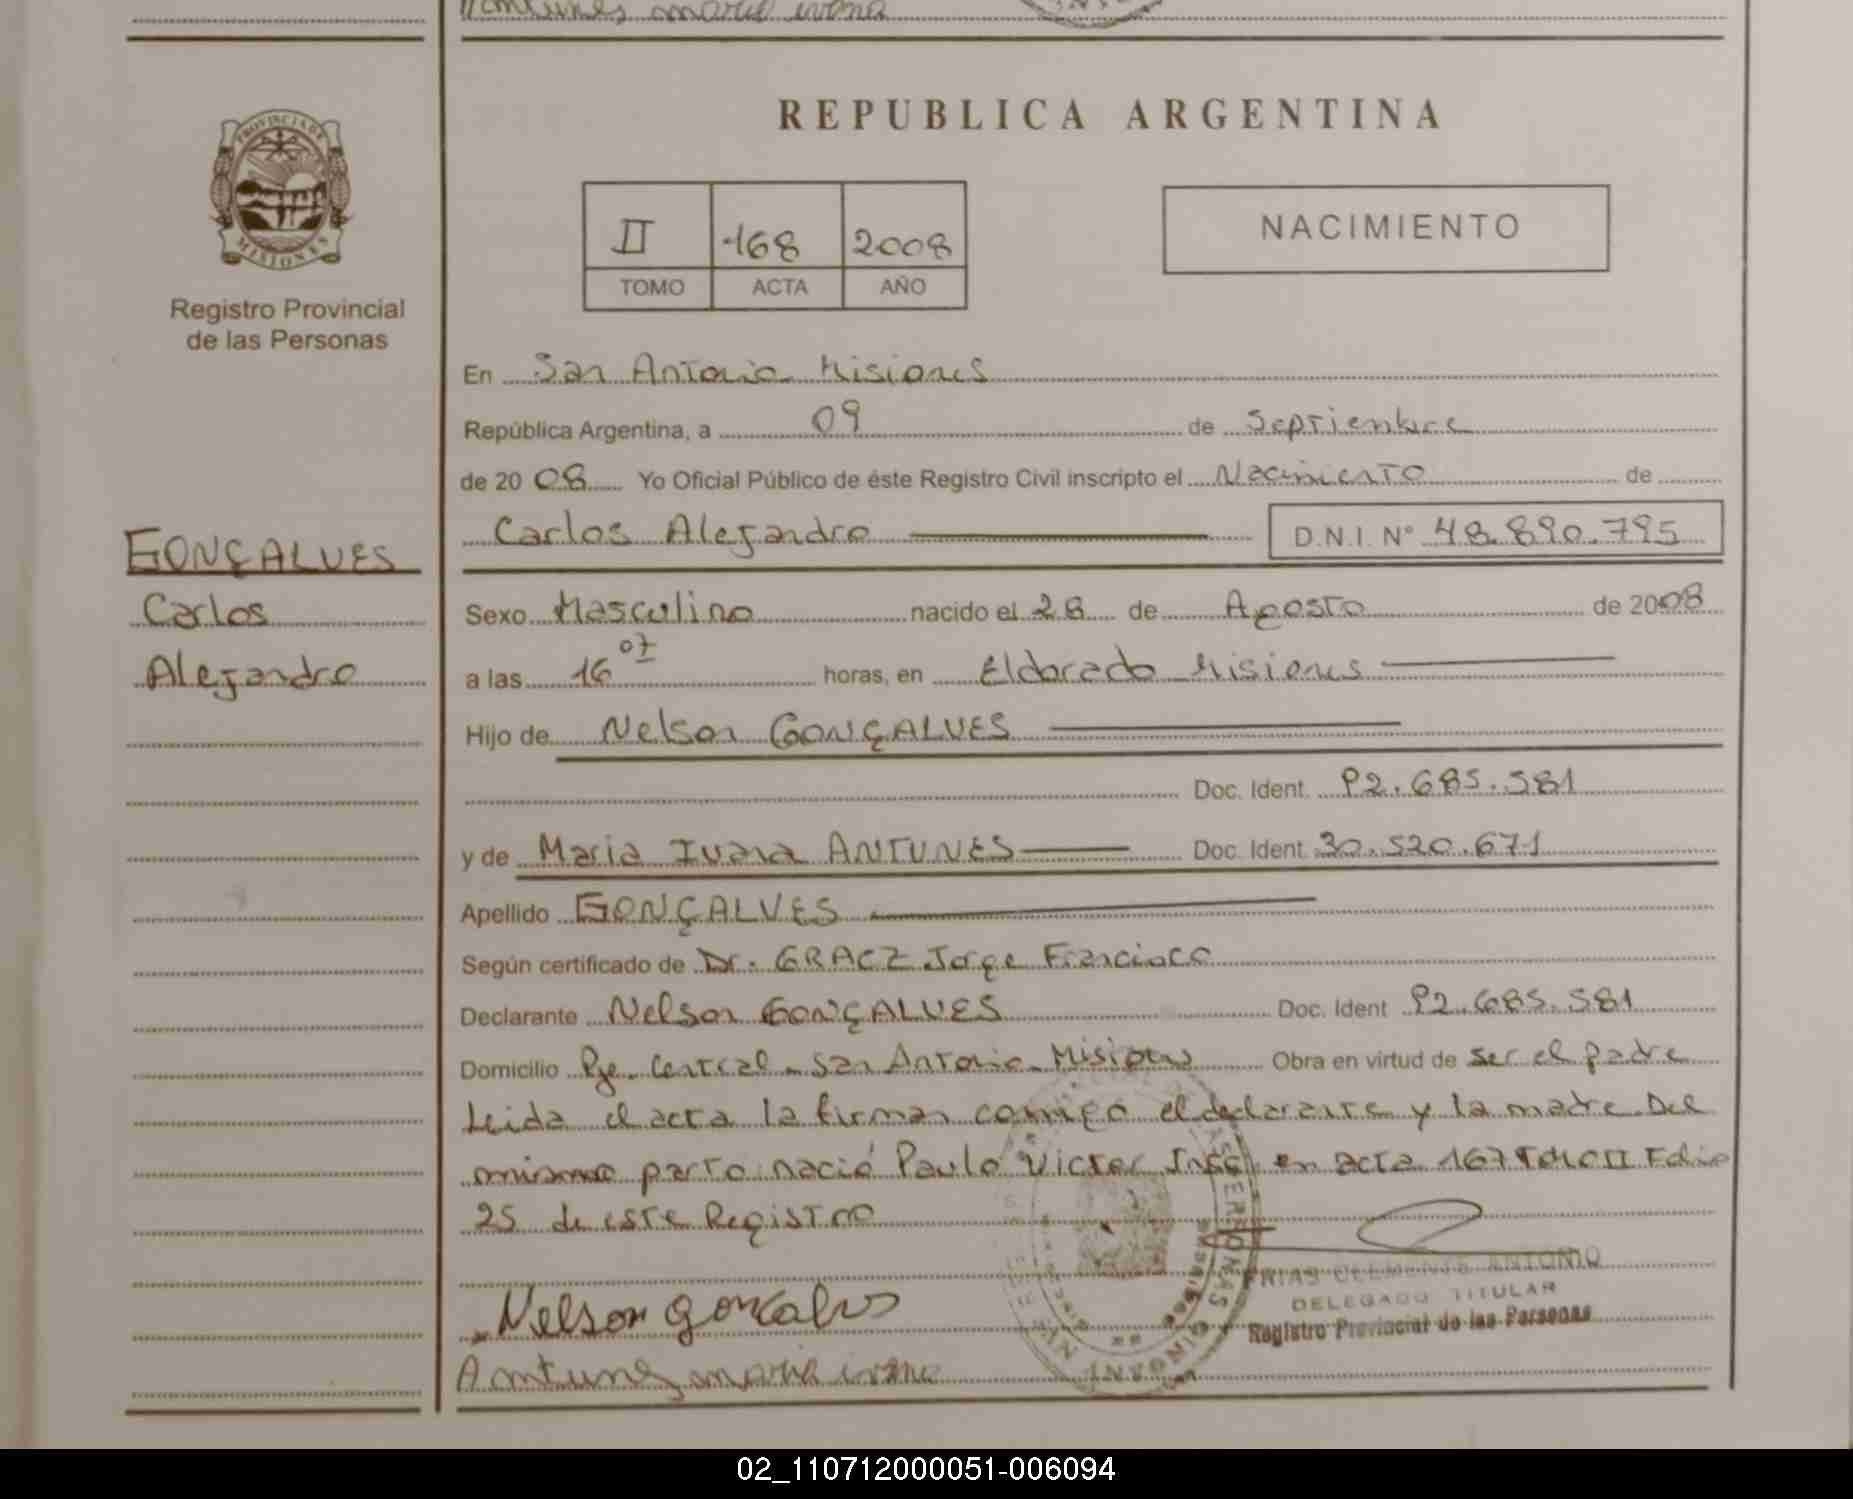 Antunes maria ivana
PROVINCIA DE
MISIONES
Registro Provincial
de las Personas
REPUBLICA ARGENTINA
II 168 2008
TOMO ACTA AÑO
NACIMIENTO
En San Antonio Misiones
República Argentina, a 09 de Septiembre
de 2008 Yo Oficial Público de éste Registro Civil inscripto el Nacimiento de
Carlos Alejandro D.N.I. Nº 48.890.795
GONÇALVES
Carlos
Alejandro
Sexo Masculino nacido el 28 de Agosto de 2008
a las 16 07 horas, en Eldorado Misiones
Hijo de Nelson GONÇALVES
Doc. Ident. P2.685.581
y de Maria Ivana ANTUNES Doc. Ident. 30.520.671
Apellido GONÇALVES
Según certificado de Dr. GRACZ Jorge Francisco
Declarante Nelson GONÇALVES Doc. Ident P2.685.581
Domicilio Pje. Central - San Antonio - Misiones Obra en virtud de ser el padre
Leida el acta la firman conmigo el declarante y la madre. Del
mismo parto nació Paulo Victor en acta 167 Tomo II Folio
25 de este Registro
Nelson goncalves
Antunes maria ivana
FRIAS CLEMENTE ANTONIO
DELEGADO TITULAR
Registro Provincial de las Personas
02_110712000051-006094